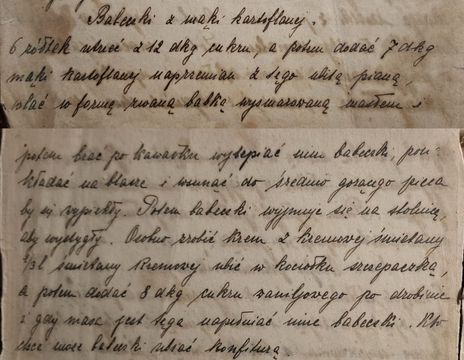 Babeczki z mąki kartoflanej.
6 żółtek utrzeć z 12 dkg cukru, a potem dodać 7 dkg
mąki kartoflanej naprzemian z tęgo ubitą pianą,
wlać w formę zwaną babką wysmarowaną masłem i
potem brać po kawałku wylepiać nim babeczki, pou-
kładać na blasze i wsunąć do średnio gorącego pieca
by się wypiekły. Potem babeczki wyjmuje się na stolnicę,
aby wystygły. Osobno zrobić krem z kremowej śmietany
śmietany kremowej ubić w kociołku trzepaczką,
a potem dodać 8 dkg cukru waniljowego po drobinie
i gdy masa jest tęga napełniać nime babeczki. Kto
chce może babeczki ubrać konfiturą